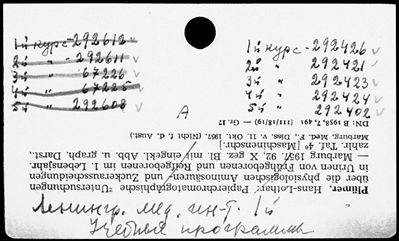 1й курс - 292612
2й " - 292611
3й " 67226
4й " 67225
5й " 292608
1й курс - 292426
2й " 292421
3й " 292423
4й " 292424
5й " 292402
A
Plümer, Hans-Lothar: Papierchromatographische Untersuchungen
über die physiologischen Aminosäuren- und Zuckerausscheidungen
in Urinen von Frühgeborenen und Reifgeborenen im 1. Lebensjahr.
— Marburg 1957. 92, X gez. Bl. mit eingekl. Abb. u. graph. Darst.,
zahlr. Taf. 4° [Maschinenschr.]
Marburg, Med. F., Diss. v. 11. Okt. 1957. (Nicht f. d. Aust.
DN: B 1958,7, 491
Ленингр. мед. ин-т. 1й
Учебные программы